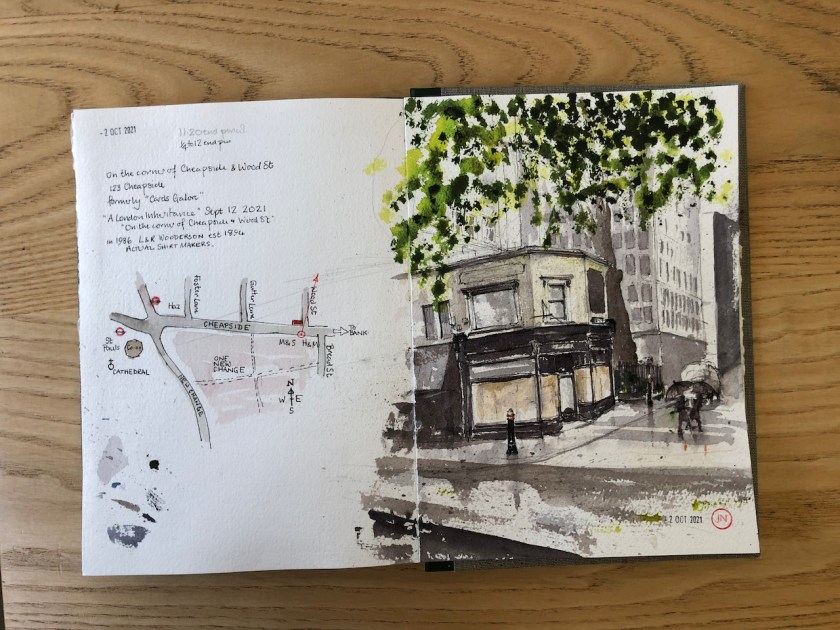 - 2 OCT 2021
11.20 end pencil
12 end pen
On the corner of Cheapside & Wood St
123 Cheapside
formerly "Cards Galore"
"A London Inheritance" Sept 12 2021
"On the corner of Cheapside & Wood St"
in 1986 L&R WOODERSON est 1884
ACTUAL SHIRT MAKERS.
Foster Lane
Gutter Lane
Wood St
CHEAPSIDE
TO BANK
St Pauls
M&S
H&M
Bread St
CATHEDRAL
ONE NEW CHANGE
NEW CHANGE
N
W E
S
2 OCT 2021
JN